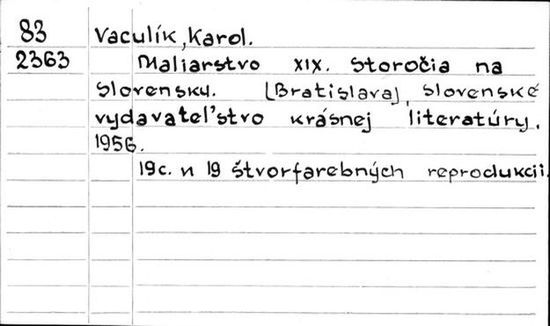 83 Vaculík, Karol.
2363 Maliarstvo XIX. storočia na
Slovensku. [Bratislava], Slovenské
vydavateľstvo krásnej literatúry.
1956.
19c. и 19 štvorfarebných reprodukcií.